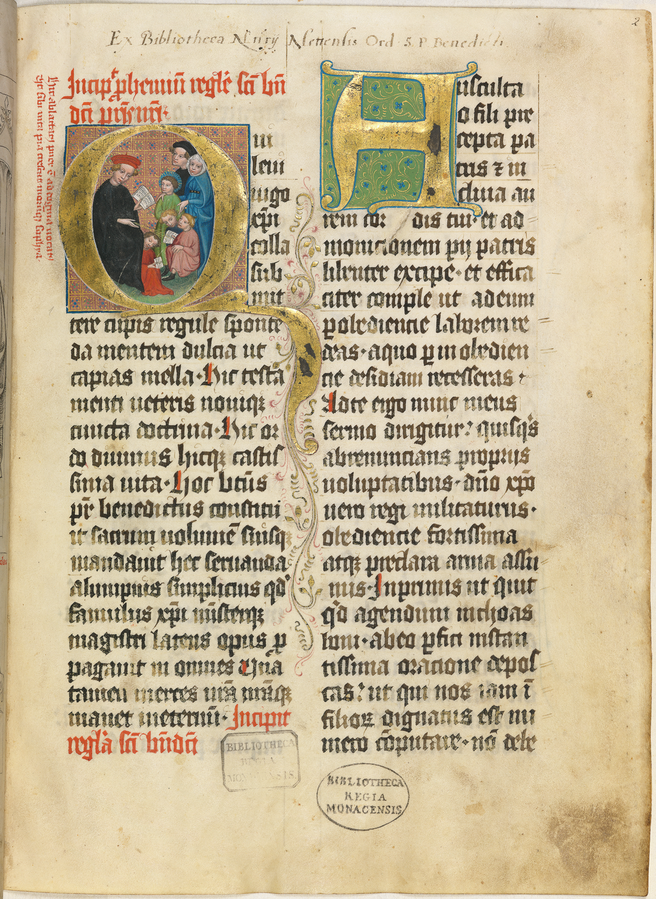 Ex Bibliotheca Mettensis Ord. S. P. Benedicti
2
Qui
leui
iugo
xpi
colla
sub
mit
tere cupis regule sponte
da mentem dulcia ut
capias mella· Hic testa
menti ueteris nouiqꝫ
cuncta doctrina· Hic or
do diuinus hicqꝫ castis
sima uita· Hoc btūs
pr̄ benedictus constitu
it sacrum uolumē suisqꝫ
mandauit hec seruanda
alumpnis simplicius qd̓
famulus xp̄i
magistri latens opus ꝓ
pagauit in omnes Una
tamen merces
manet ineternum· Incipit
regl̄a sc̄i bn̄dc̄i
Ausculta
o fili pre
cepta pa
tris ⁊ in
clina au
rem cordis tui· et ad
monicionem pij patris
libenter excipe· et effica
citer comple ut ad eum
ꝑ obediencie laborem re
deas· a quo ꝑ in obedien
cie desidiam recesseras·
Ad te ergo nunc meus
sermo dirigitur· quisqͥs
abrenuncians proprijs
uoluptatibus· dn̄o xp̄o
uero regi militaturus·
obediencie fortissima
atqꝫ preclara arma assu
mis· Inprimis ut quit
qd̓ agendum inchoas
boni· ab eo ꝑfici instan
tissima oracione depos
cas· ut qui nos iam ī
filioꝝ dignatus est nu
mero cōputare· nō debe
BIBLIOTHECA
REGIA
MONACENSIS
BIBLIOTHECA
REGIA
MONACENSIS